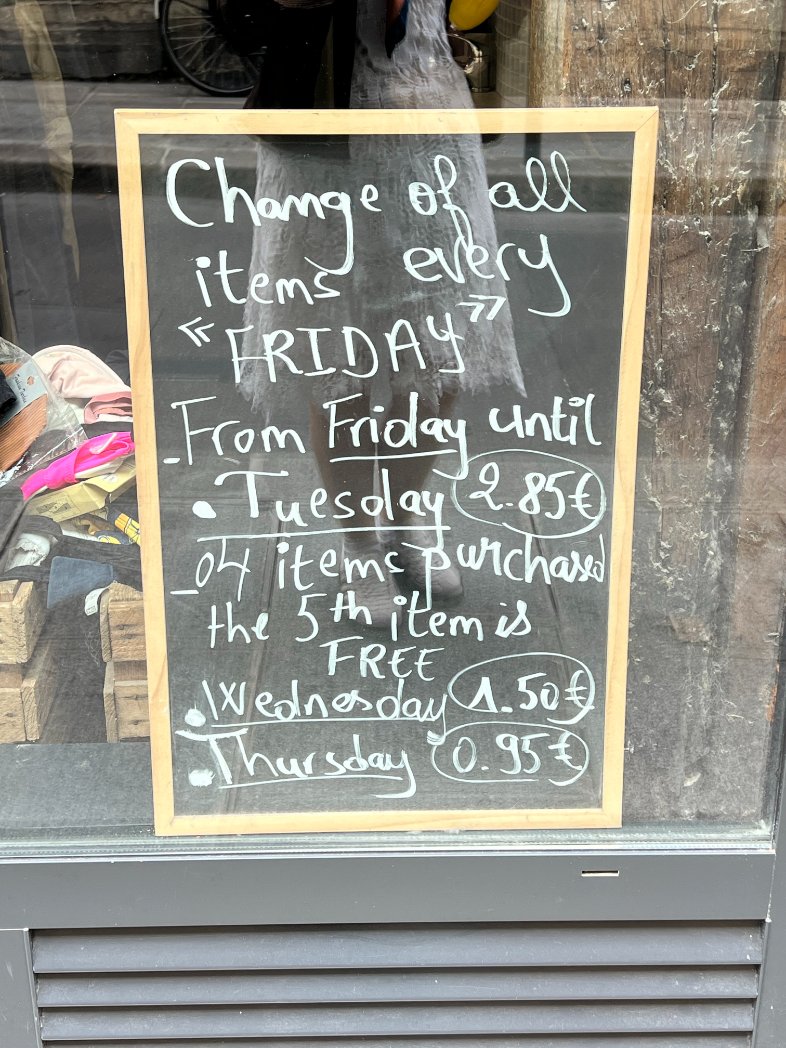 Change of all
items every
« FRIDAY »
- From Friday until
. Tuesday 2.85€
- 04 items purchased
the 5th item is
FREE
. Wednesday 1.50€
. Thursday 0.95€